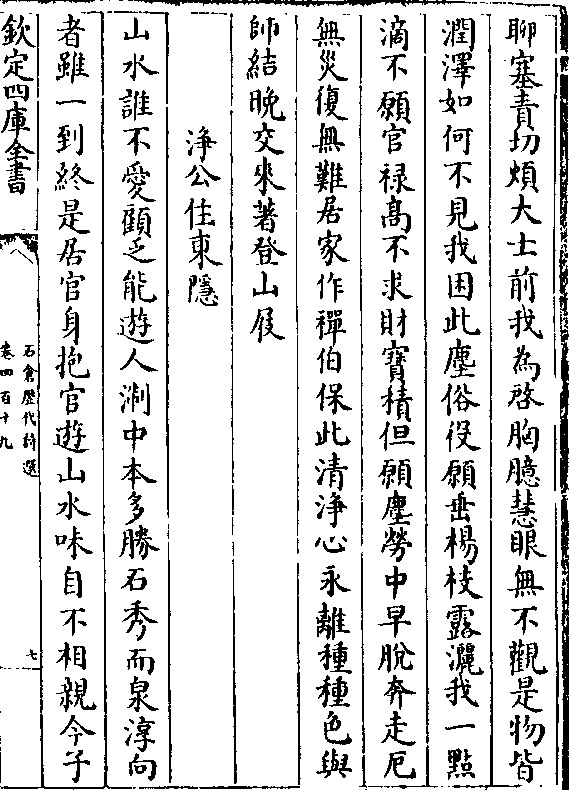 聊塞責切煩大士前我為啓胸臆慧眼無不觀是物皆
潤澤如何不見我困此塵俗役願垂楊枝露灑我一點
滴不願官禄髙不求財寳積但願塵勞中早脫奔走厄
無災復無難居家作禪伯保此清浄心永離種種色與
師結晚交來著登山屐
浄公住東隱
山水誰不愛顧乏能遊人淛中本多勝石秀而泉淳向
者雖一到終是居官身抱官遊山水味自不相親今子
欽定四庫全書
石倉歷代詩選
卷四百十九
七